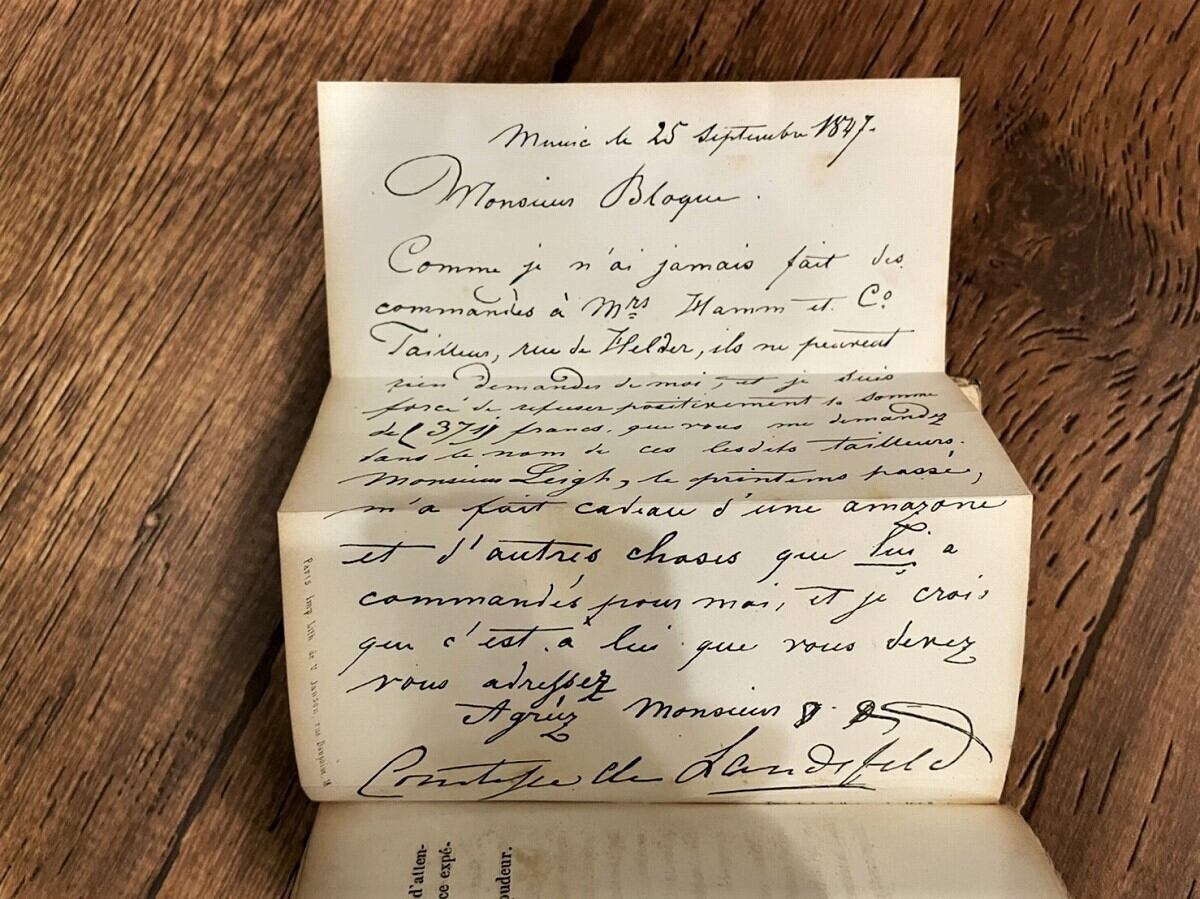 Munic le 25 Septembre 1847.
Monsieur Bloque.
Comme je n'ai jamais fait des
commandès à Mrs Hamm et Co
Tailleur, rue de Helder, ils ne peuvent
rien demandes de moi, et je suis
forcé de refuser positivement la somme
de francs, que vous me demandez
dans le nom de ces lesdits tailleurs.
Monsieur Leigh, le printems passé,
m'a fait cadeau d'une amazone
et d'autres choses que lui a
commandés pour moi, et je crois
que c'est à lui que vous devez
vous adressez
Agréez Monsieur
Comtesse de Landsfeld
Paris Imp. Lith. de V. Janson, rue Dauphine,
d'atten-
ce expé-
oudeur.